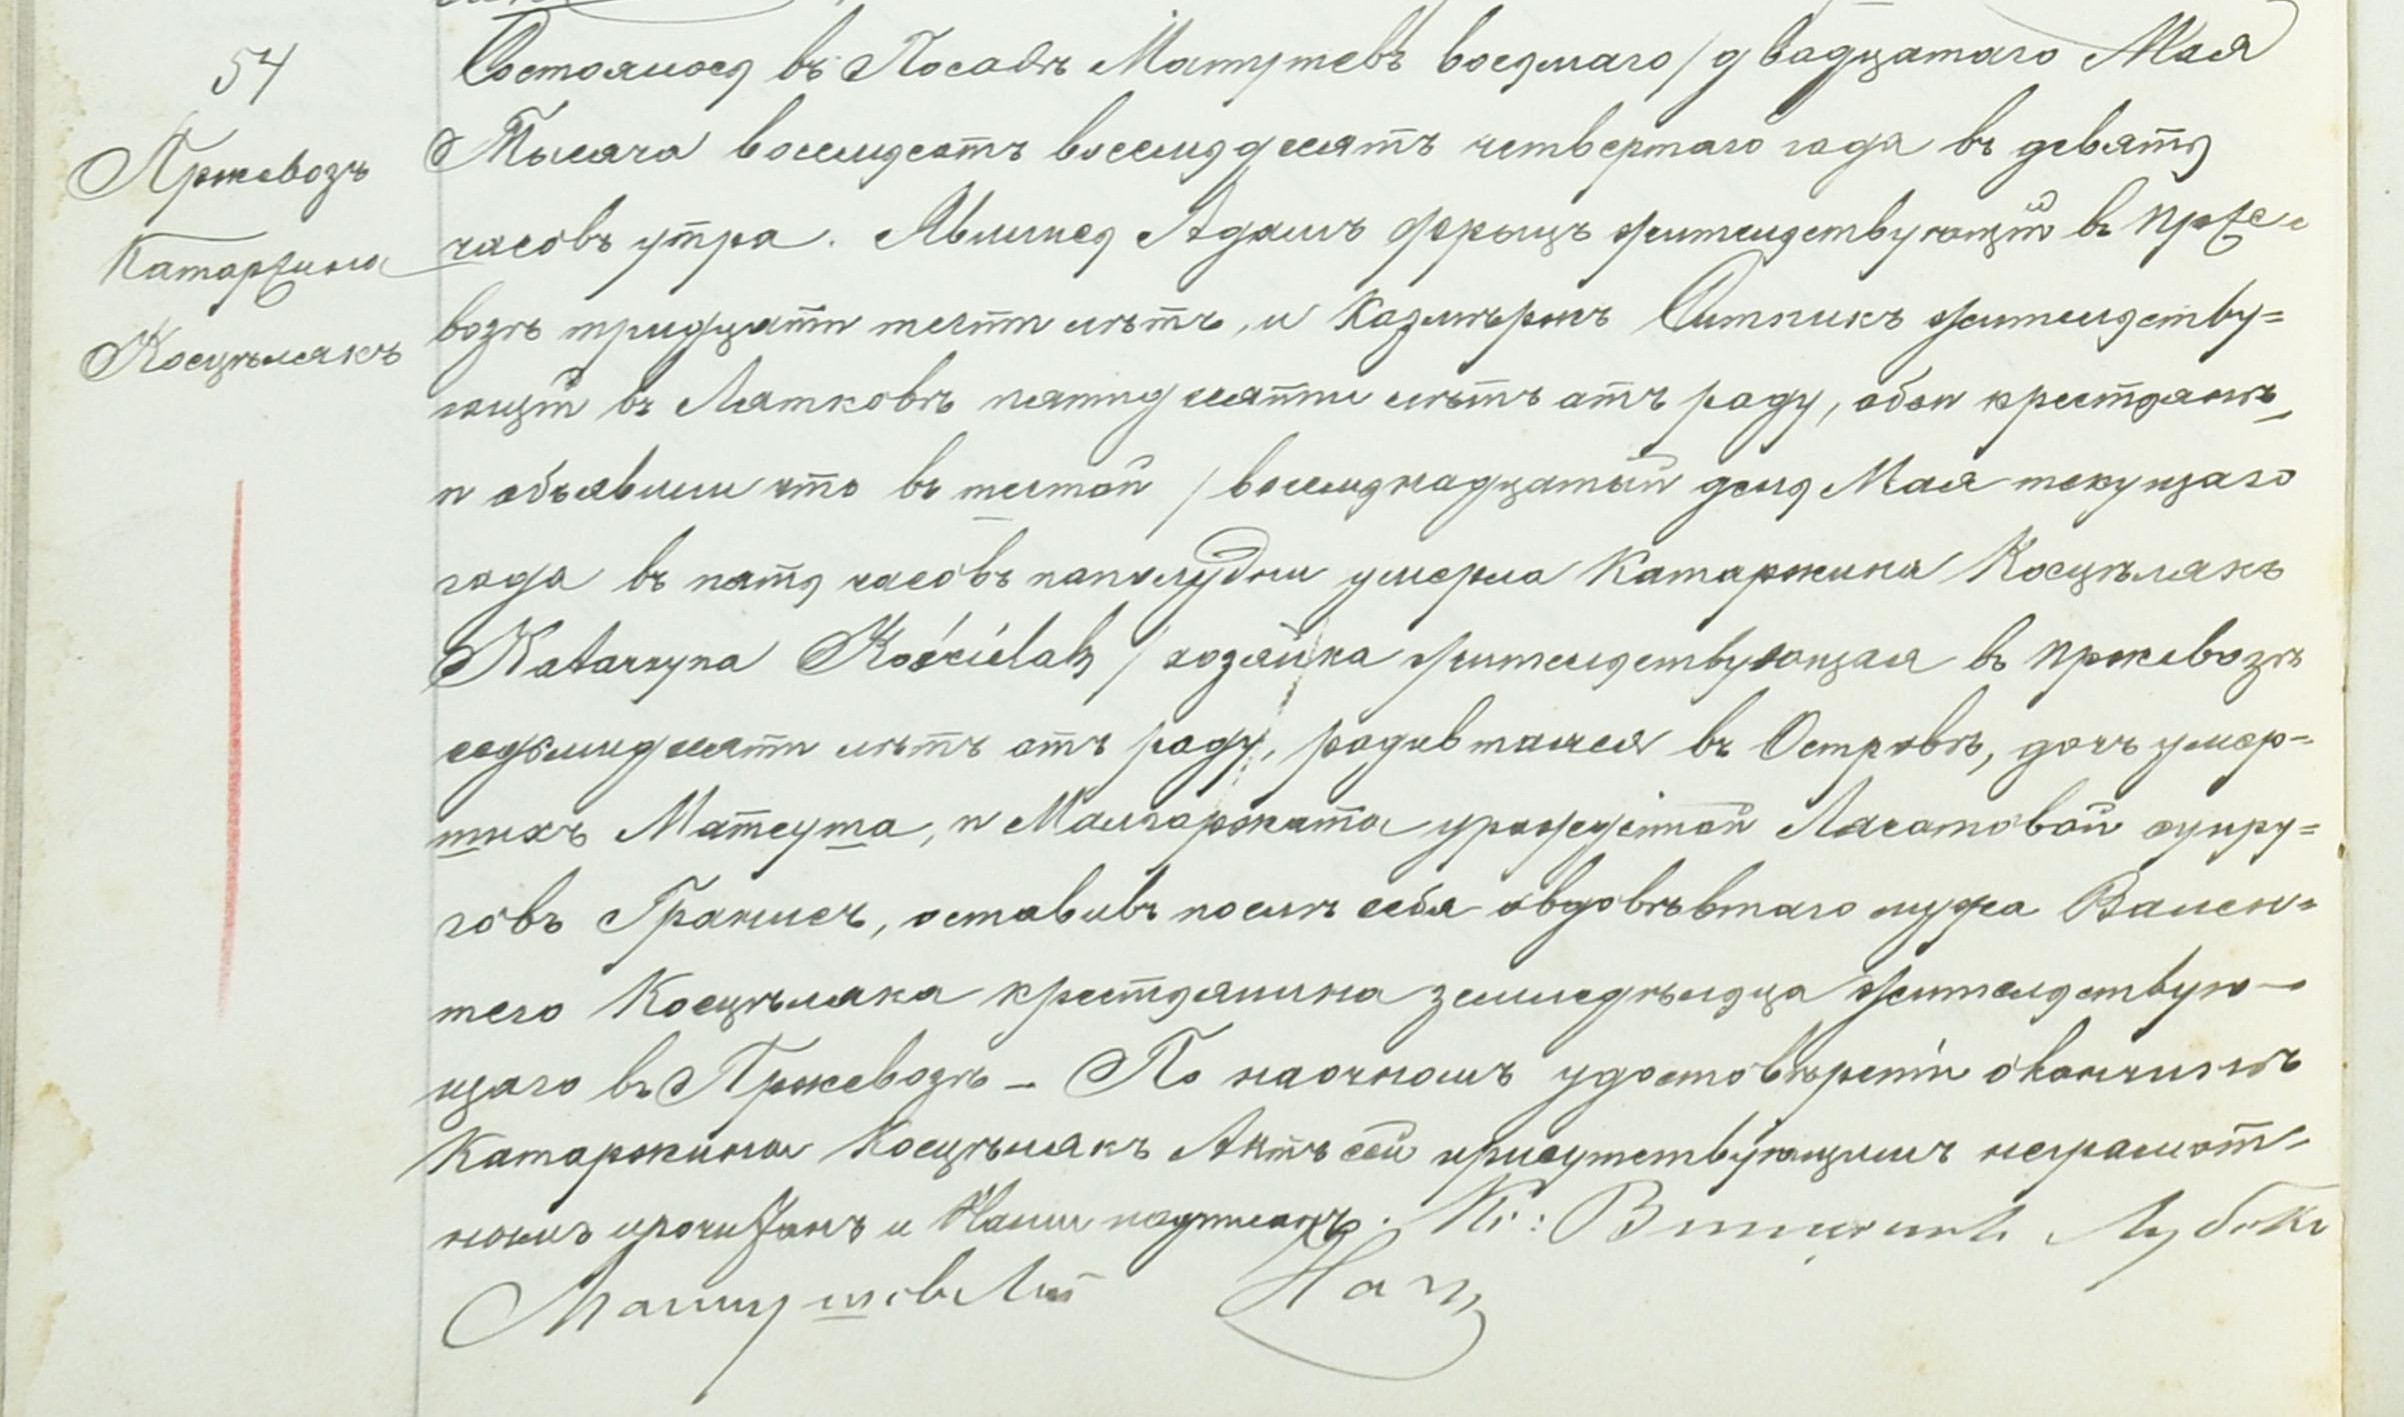 54
Пржевозъ
Катаржина
Косцѣлякъ
Состоялось въ Посадѣ Матушевъ восьмаго / двадцатаго Мая
Тысяча восемьсотъ восемьдесятъ четвертаго года въ девять
часовъ утра. Явились Адамъ Фрыцъ жительствующій въ Прже
возѣ тридцати шести лѣтъ, и Казимѣржъ Ситникъ жительству=
ющій въ Лятковѣ пятидесяти лѣтъ отъ роду, обои крестьянѣ
и объявили что въ шестой / восемьнадцатый день Мая текущаго
года въ пять часовъ пополудни умерла Катаржина Косцѣлякъ
Katarzyna Kościelak / хозяйка жительствующая въ Пржевозѣ
седьмидесяти лѣтъ отъ роду, родившаяся въ Островѣ, дочъ умер=
шихъ Матеуша, и Малгоржаты урожденной супру=
говъ оставивъ послѣ себя овдовѣвшаго мужа Вален=
тего Косцѣляка крестьянина земледѣльца жительствую-
щаго въ Пржевозѣ – По наочномъ удостовѣреніи о кончинѣ
Катаржины Косцѣлякъ Актъ сей присутствующимъ неграмот-
нымъ прочитанъ и Нами подписанъ. Кс: